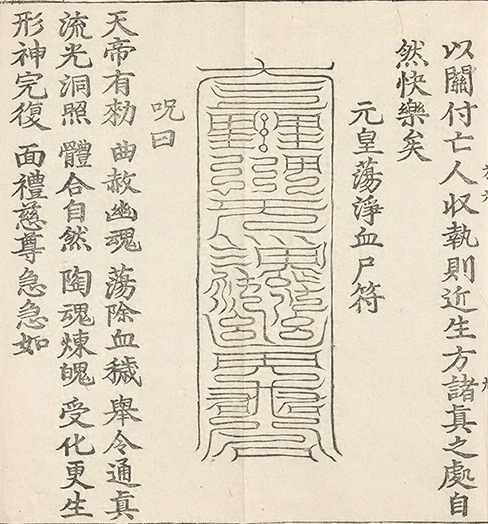 以關付亡人収執則近生方諸真之處自
然快樂矣
元皇蕩淨血尸符
呪曰
天帝有勑 曲赦幽魂 蕩除血穢 舉令通真
流光洞照 體合自然 陶魂煉魄 受化更生
形神完復 面禮慈尊急急如